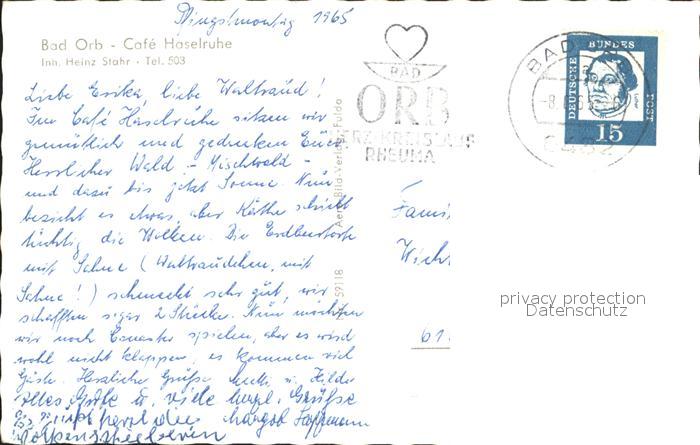 Pfingstmontag 1965
Bad Orb - Café Haselruhe
Inh. Heinz Stahr · Tel. 503
Liebe Erika, liebe Waltraud!
Im Café Haselruhe sitzen wir
gemütlich und gedenken Euch
Herrlicher Wald - Mischwald -
und dazu bis jetzt Sonne. Nun
bezieht es etwas, aber Käthe schiebt
tüchtig die Wolken. Die Erdbeertorte
mit Sahne (Waltraudchen, mit
Sahne!) schmeckt sehr gut, wir
schafften sogar 2 Stücke. Nun möchten
wir noch Canaster spielen, aber es wird
wohl nicht klappen, es kommen viel
Gäste. Herzliche Grüße u. Hilde
Alles Gute u. viele herzl. Grüße
Margot
Aero-Bild-Verlag Fulda
59118
BAD
ORB
HERZ-KREISLAUF
RHEUMA
BAD
6482
DEUTSCHE BUNDESPOST
15
Fami
Wich
61
privacy protection
Datenschutz